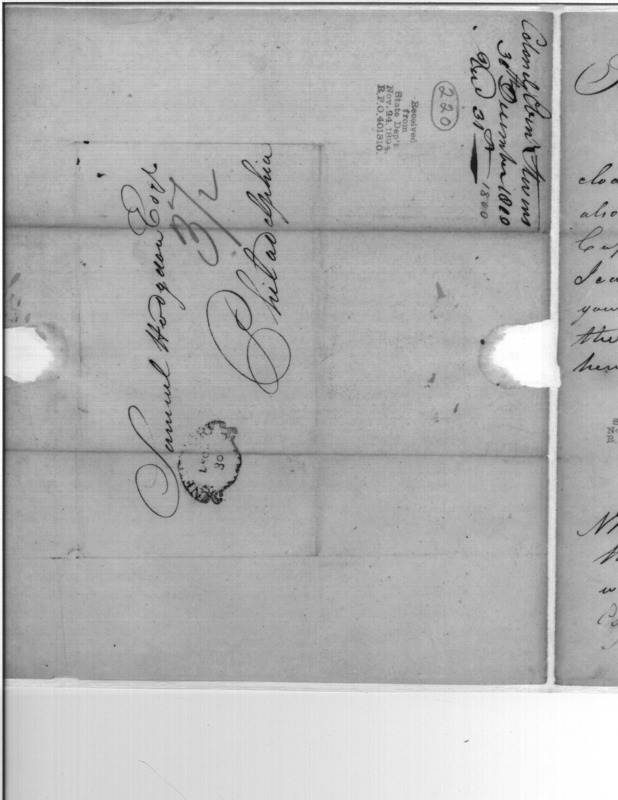 Colonel Eben Stevens
30th December 1800
Recd 31st — 1800
220
Received
from
State Dep't
Nov. 24, 1894.
R.P.O. 401810.
Samuel Hodgdon Esqr
Philadelphia
30
also
you
the